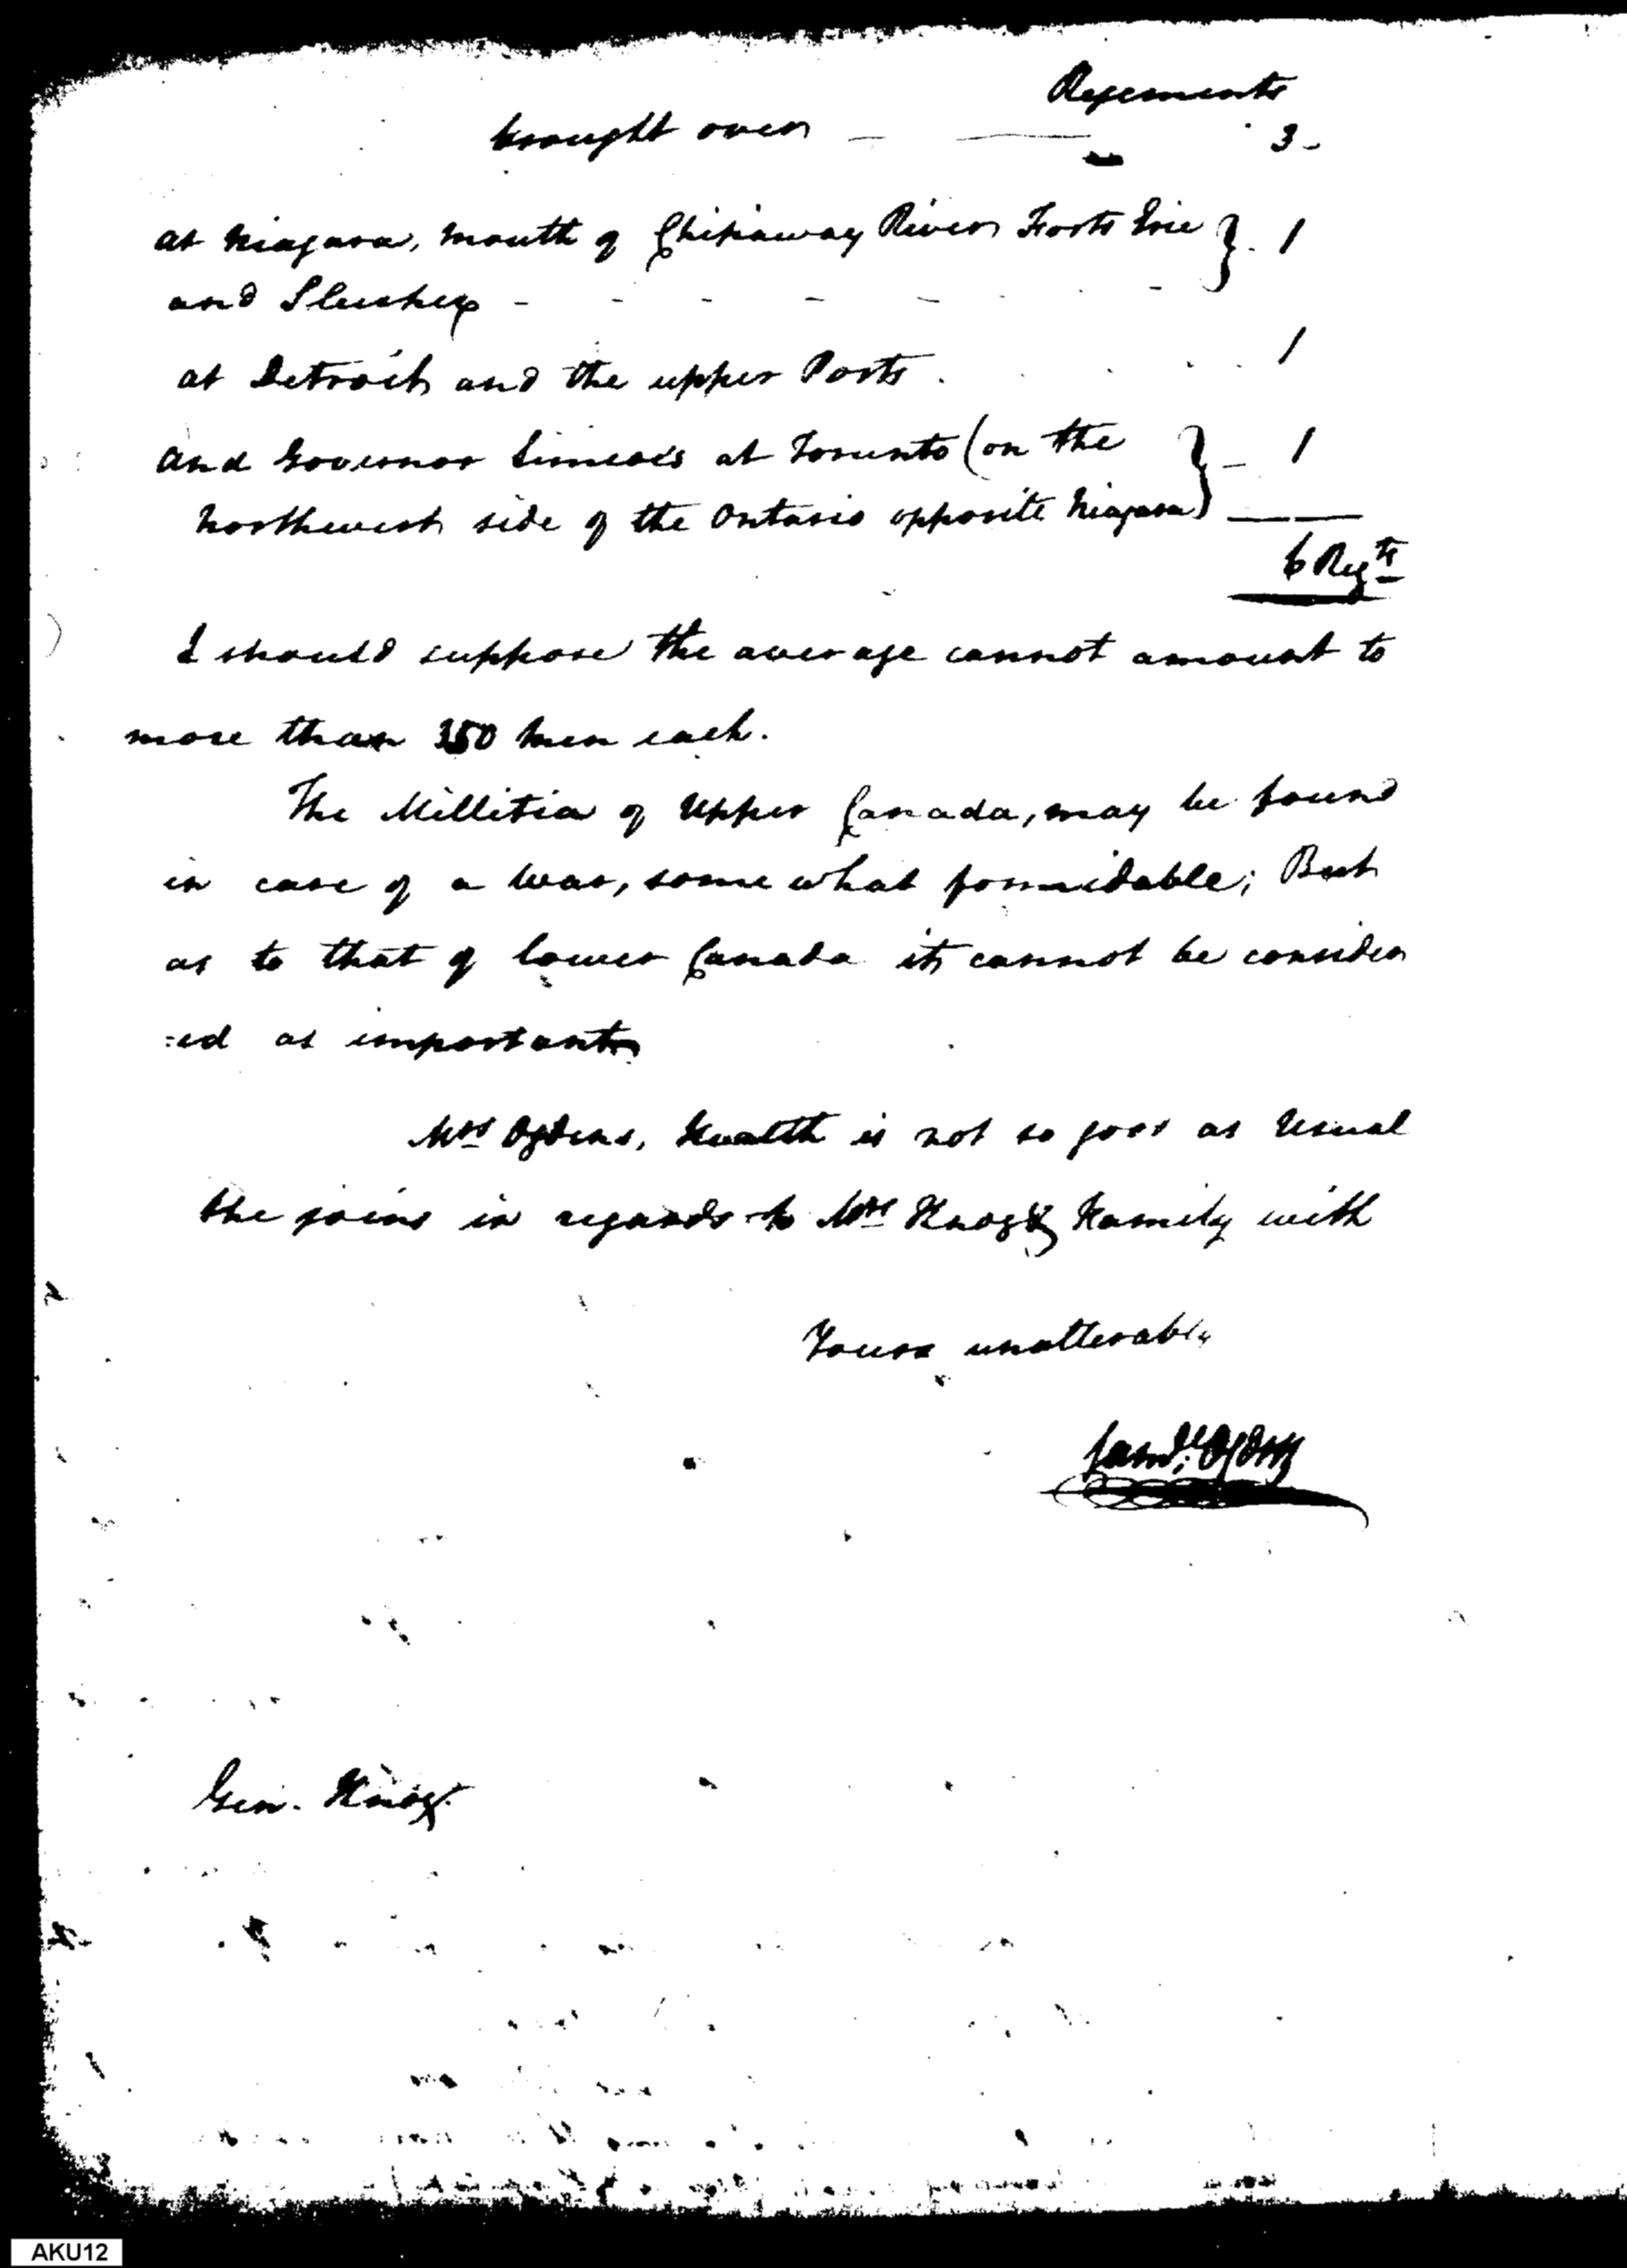 Regements
brought over — — 3-
at Niagara, mouth of Chipaway River Forts Erie } . 1
and Slusher - - - - - -
at Detroit and the upper Posts . . . . 1
And Governor Simcoe's at Toronto (on the } - 1
Northwest side of the Ontario opposite Niagara)
6 Regts
I should suppose the average cannot amount to
more than 350 Men each.
The Millitia of Upper Canada, may be found
in case of a War, some what formidable; But
as to that of lower Canada it cannot be consider
=ed as important
Mrs Ogdens, Health is not so good as Usual
she joins in regards to Mrs Knox & Family with
Yours unalterably
Saml: Ogden
Gen. Knox.
AKU12